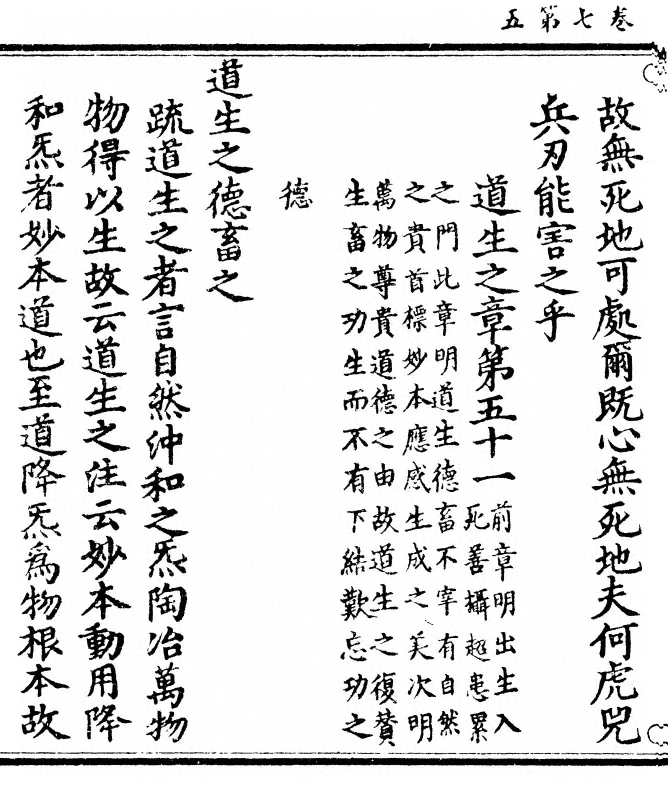 卷七第五
故無死地可處爾既心無死地夫何虎兕
兵刃能害之乎
道生之章第五十一
前章明出生入
死善攝超患累
之門此章明道生德畜不宰有自然
之貴首標妙本應感生成之美次明
萬物尊貴道德之由故道生之復贊
生畜之功生而不有下結歎忘功之
德
道生之德畜之
疏道生之者言自然沖和之炁陶冶萬物
物得以生故云道生之注云妙本動用降
和炁者妙本道也至道降炁爲物根本故